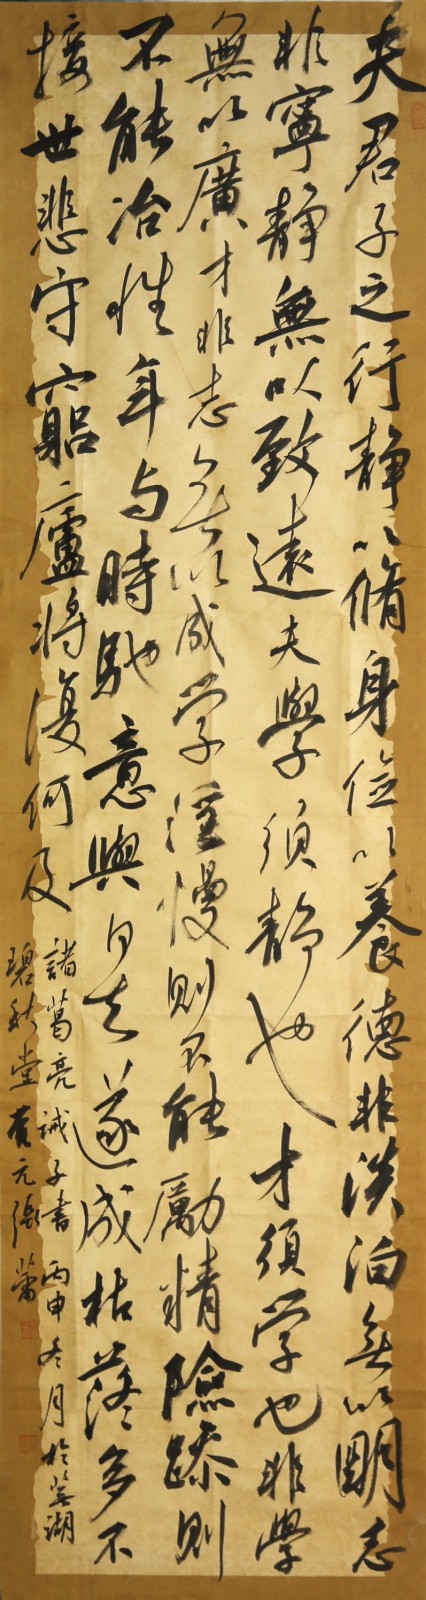 夫君子之行静以脩身俭以養德非淡泊无以明志
非寧静無以致遠夫學須静也才須学也非學
無以廣才非志无以成学淫慢则不能勵精險躁则
不能冶性年与時馳意與日去遂成枯落多不
接世悲守窮廬將復何及
諸葛亮誡子書 丙申冬月於蕪湖
碧秋堂